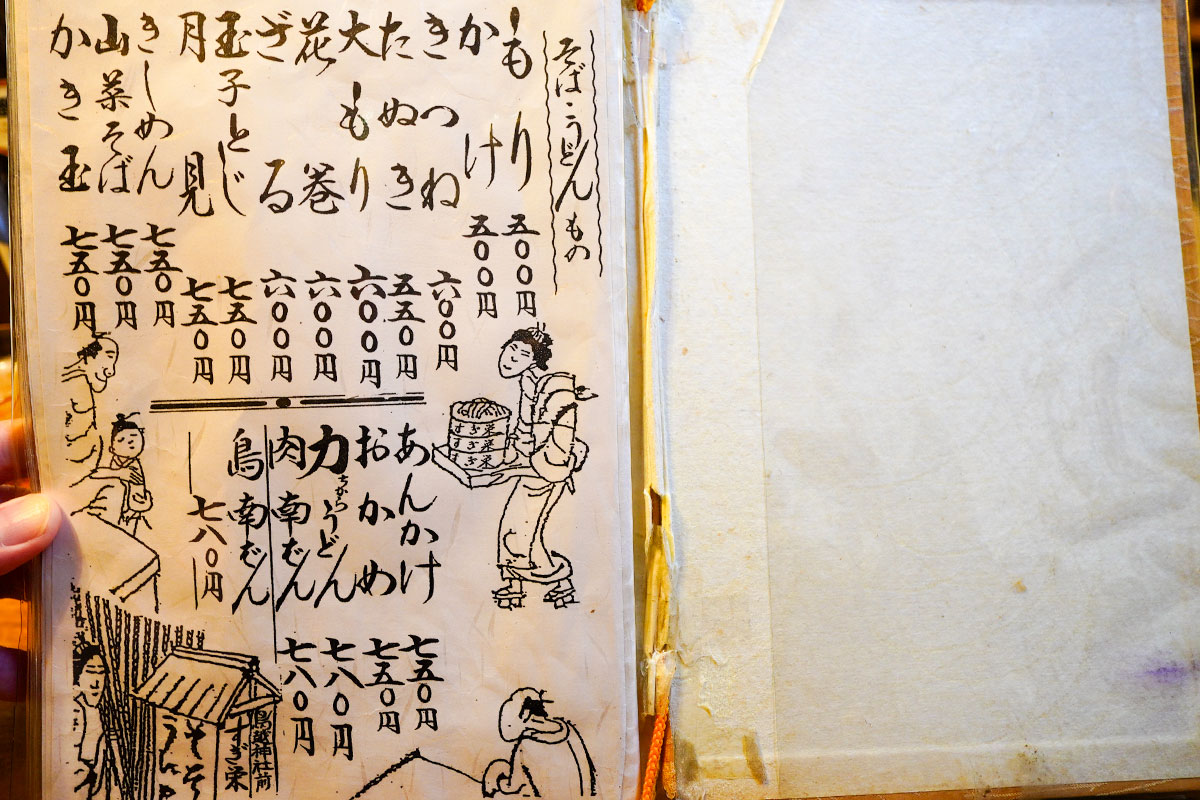 そば・うどんもの
もり 五〇〇円
かけ 五〇〇円
きつね 六〇〇円
たぬき 五五〇円
大もり 六〇〇円
花巻 六〇〇円
ざる 六〇〇円
玉子とじ 七五〇円
月見 七五〇円
きしめん 七五〇円
山菜そば 七五〇円
かき玉 七五〇円
あんかけ 七五〇円
おかめ 七五〇円
力うどん 七八〇円
ちから
肉南ばん 七八〇円
鳥南ばん
七八〇円
すぎ栄
すぎ栄
すぎ栄
鳥越神社前
すぎ栄